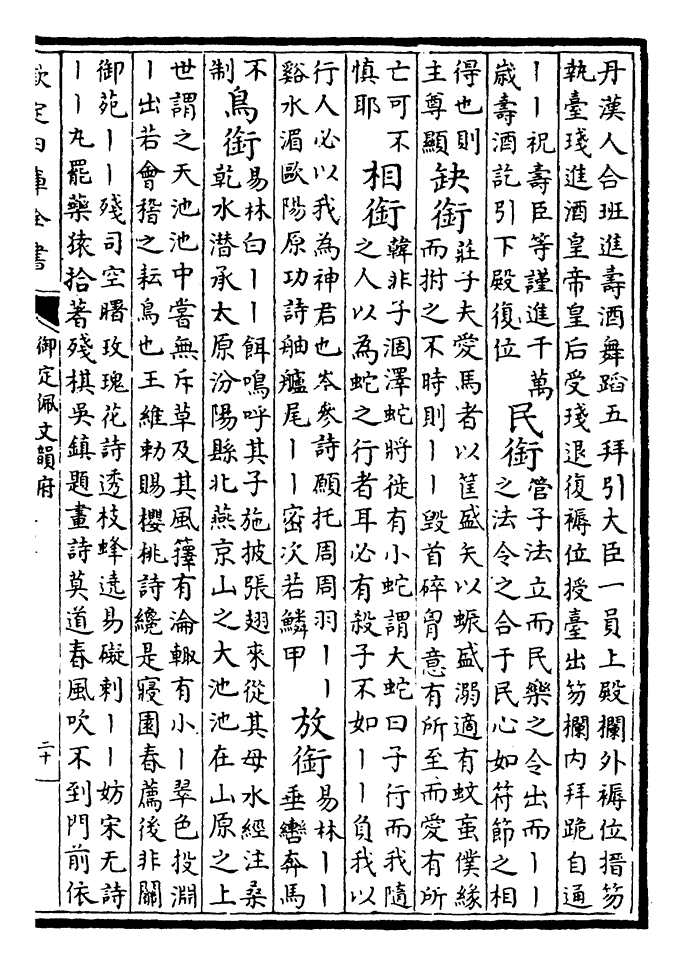 丹漢人合班進壽酒舞蹈五拜引大臣一員上殿欄外褥位搢笏
執臺琖進酒皇帝皇后受琖退復褥位授臺出笏欄內拜跪自通
丨丨祝壽臣等謹進千萬
歲壽酒訖引下殿復位
民銜
管子法立而民樂之令出而丨丨
之法令之合于民心如符節之相
得也則
主尊顯
缺銜
莊子夫愛馬者以筐盛矢以蜄盛溺適有蚊䖟僕緣
而拊之不時則丨丨毀首碎胷意有所至而愛有所
亡可不
慎耶
相銜
韓非子涸澤蛇將徙有小蛇謂大蛇曰子行而我隨
之人以為蛇之行者耳必有殺子不如丨丨負我以
行人必以我為神君也岑參詩願托周周羽丨丨
谿水湄歐陽原功詩舳艫尾丨丨密次若鱗甲
放銜
易林丨丨
垂轡奔馬
不
制
鳥銜
易林白丨丨餌鳴呼其子施披張翅來從其母水經注桑
乾水潛承太原汾陽縣北燕京山之大池池在山原之上
世謂之天池池中嘗無斥草及其風籜有淪輙有小丨翠色投淵
丨出若會稽之耘鳥也王維勅賜櫻桃詩纔是寢園春薦後非關
御苑丨丨殘司空曙玫瑰花詩透枝蜂遶易礙刺丨丨妨宋无詩
丨丨丸罷藥猿拾著殘棋吳鎮題畫詩莫道春風吹不到門前依
欽定四庫全書
御定佩文韻府
二十